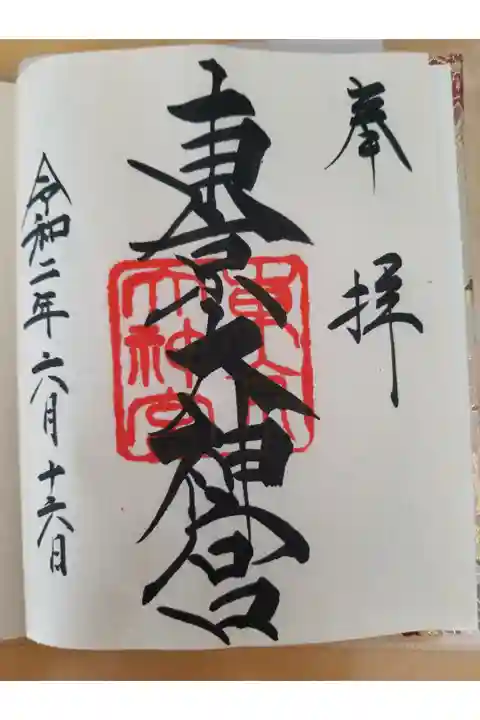 奉拝
東京大神宮
東京大神宮
令和二年六月十六日